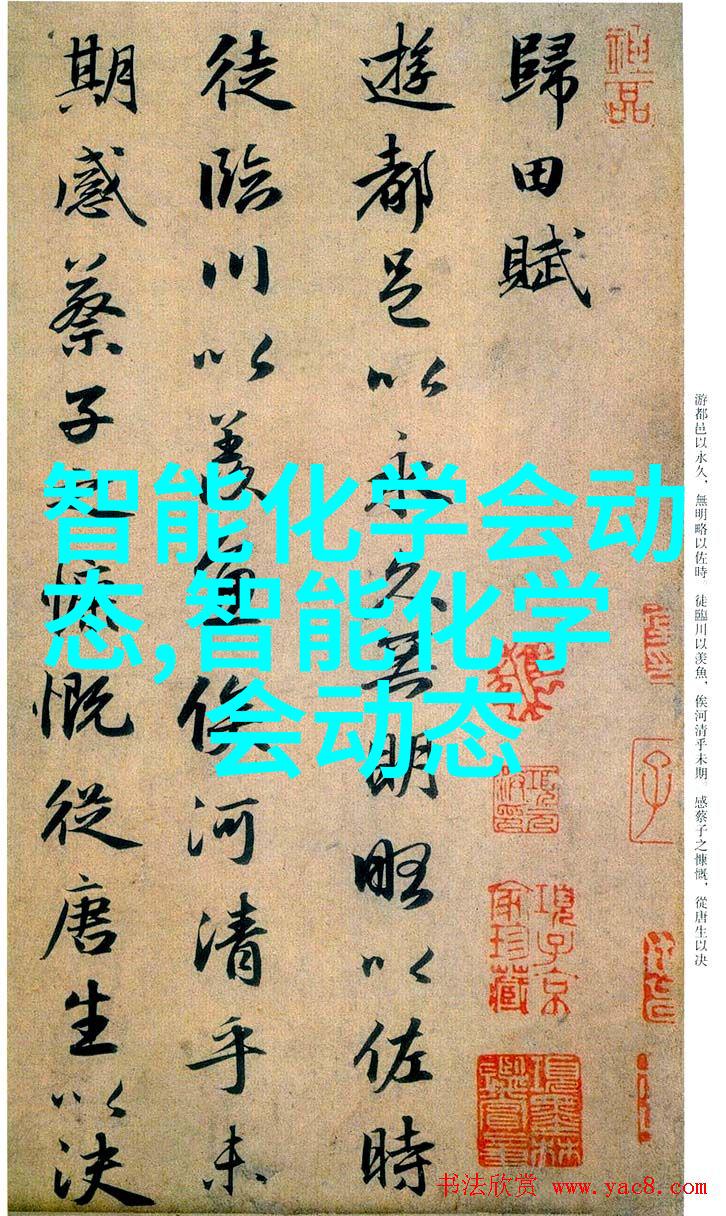 歸田賦
遊都邑以永久無明略以佐時
徒臨川以羨魚俟河清乎未
期感蔡子之慷慨從唐生以决
智能化学会动
态,智能化学
会动态
游都邑以永久，無明略以佐時。徒臨川以羨魚，俟河清乎未期。感蔡子之慷慨，從唐生以决
項子京
家珍藏
书法欣赏 www.yac8.com